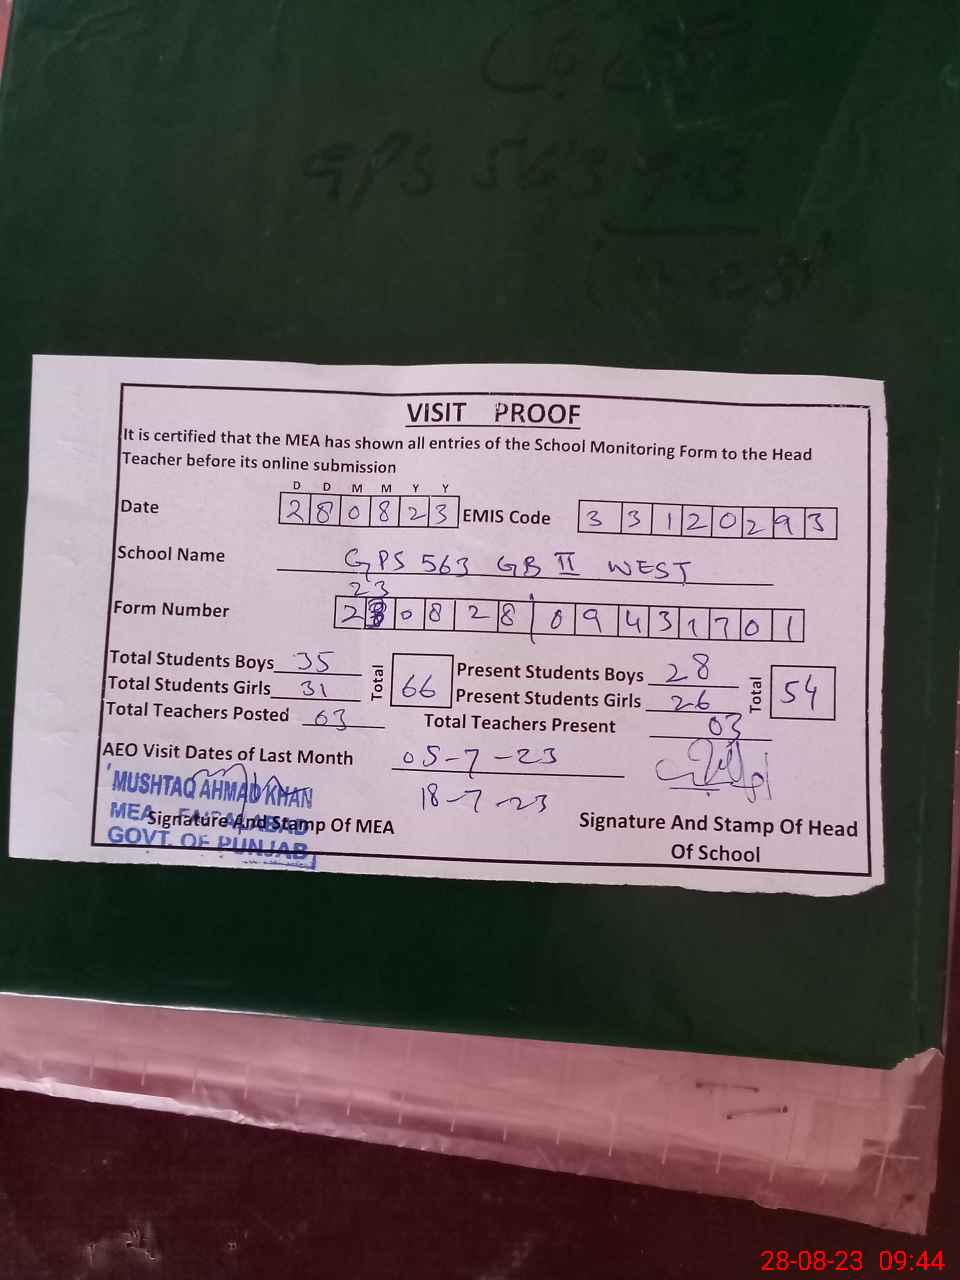 GPS 563 GB
(West)
VISIT PROOF
It is certified that the MEA has shown all entries of the School Monitoring Form to the Head
Teacher before its online submission
D D M M Y Y
Date 280823 EMIS Code 33120293
School Name GPS 563 GB II WEST
23
Form Number 2 08 28 09431701
Total Students Boys 35 Total 66 Present Students Boys 28 Total 54
Total Students Girls 31 Present Students Girls 26
Total Teachers Posted 03 Total Teachers Present 03
AEO Visit Dates of Last Month 05-7-23
18-7-23
MUSHTAQ AHMAD KHAN
MEA FAISALABAD
GOVT. OF PUNJAB
Signature And Stamp Of MEA
Signature And Stamp Of Head
Of School
28-08-23 09:44